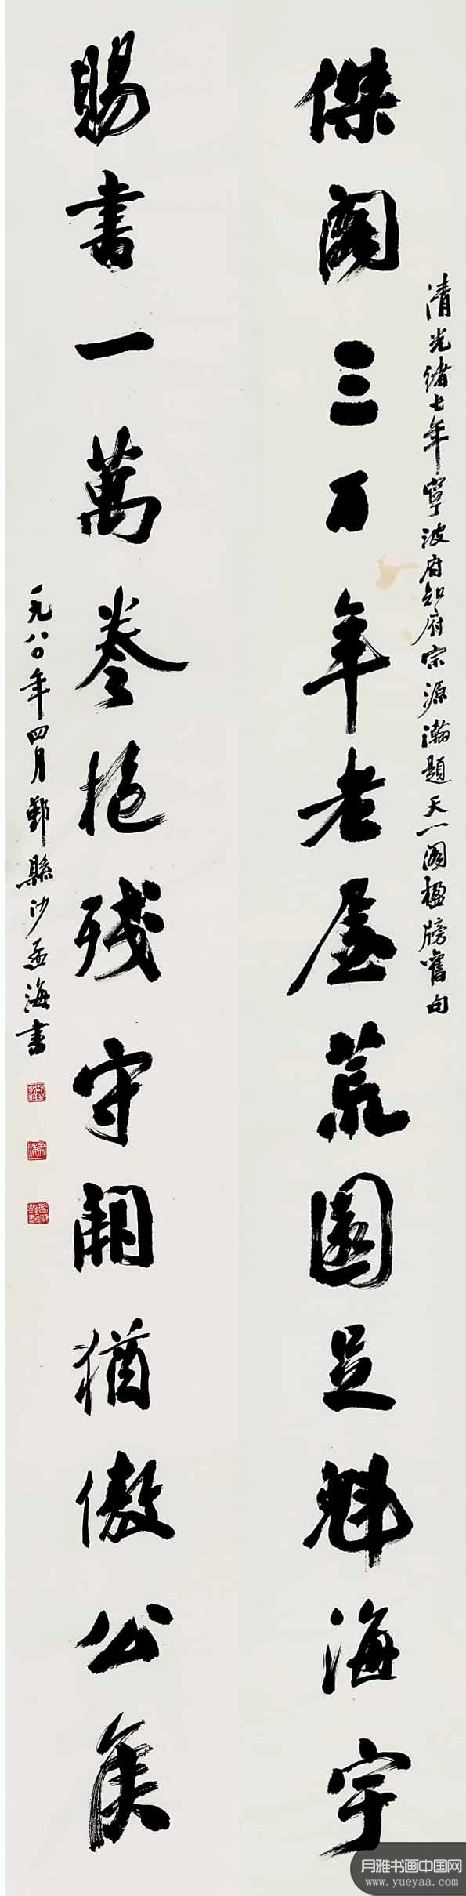 清光緒七年寧波府知府宗源瀚題天一閣楹牓舊句
傑閣三百年老屋荒園足魁海宇
賜書一萬卷抱殘守闕猶傲公侯
一九八〇年四月鄞縣沙孟海書
月雅书画中国网
www.yueyaa.com